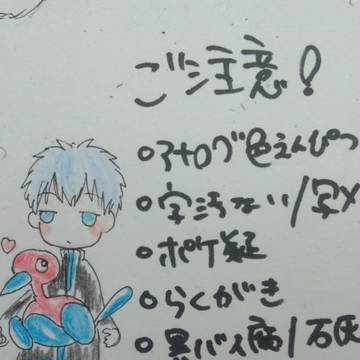 ご注意!
○アナログ色えんぴつ
○字汚ない/写メ
○ポケ擬
○らくがき
○黒バイ腐/石